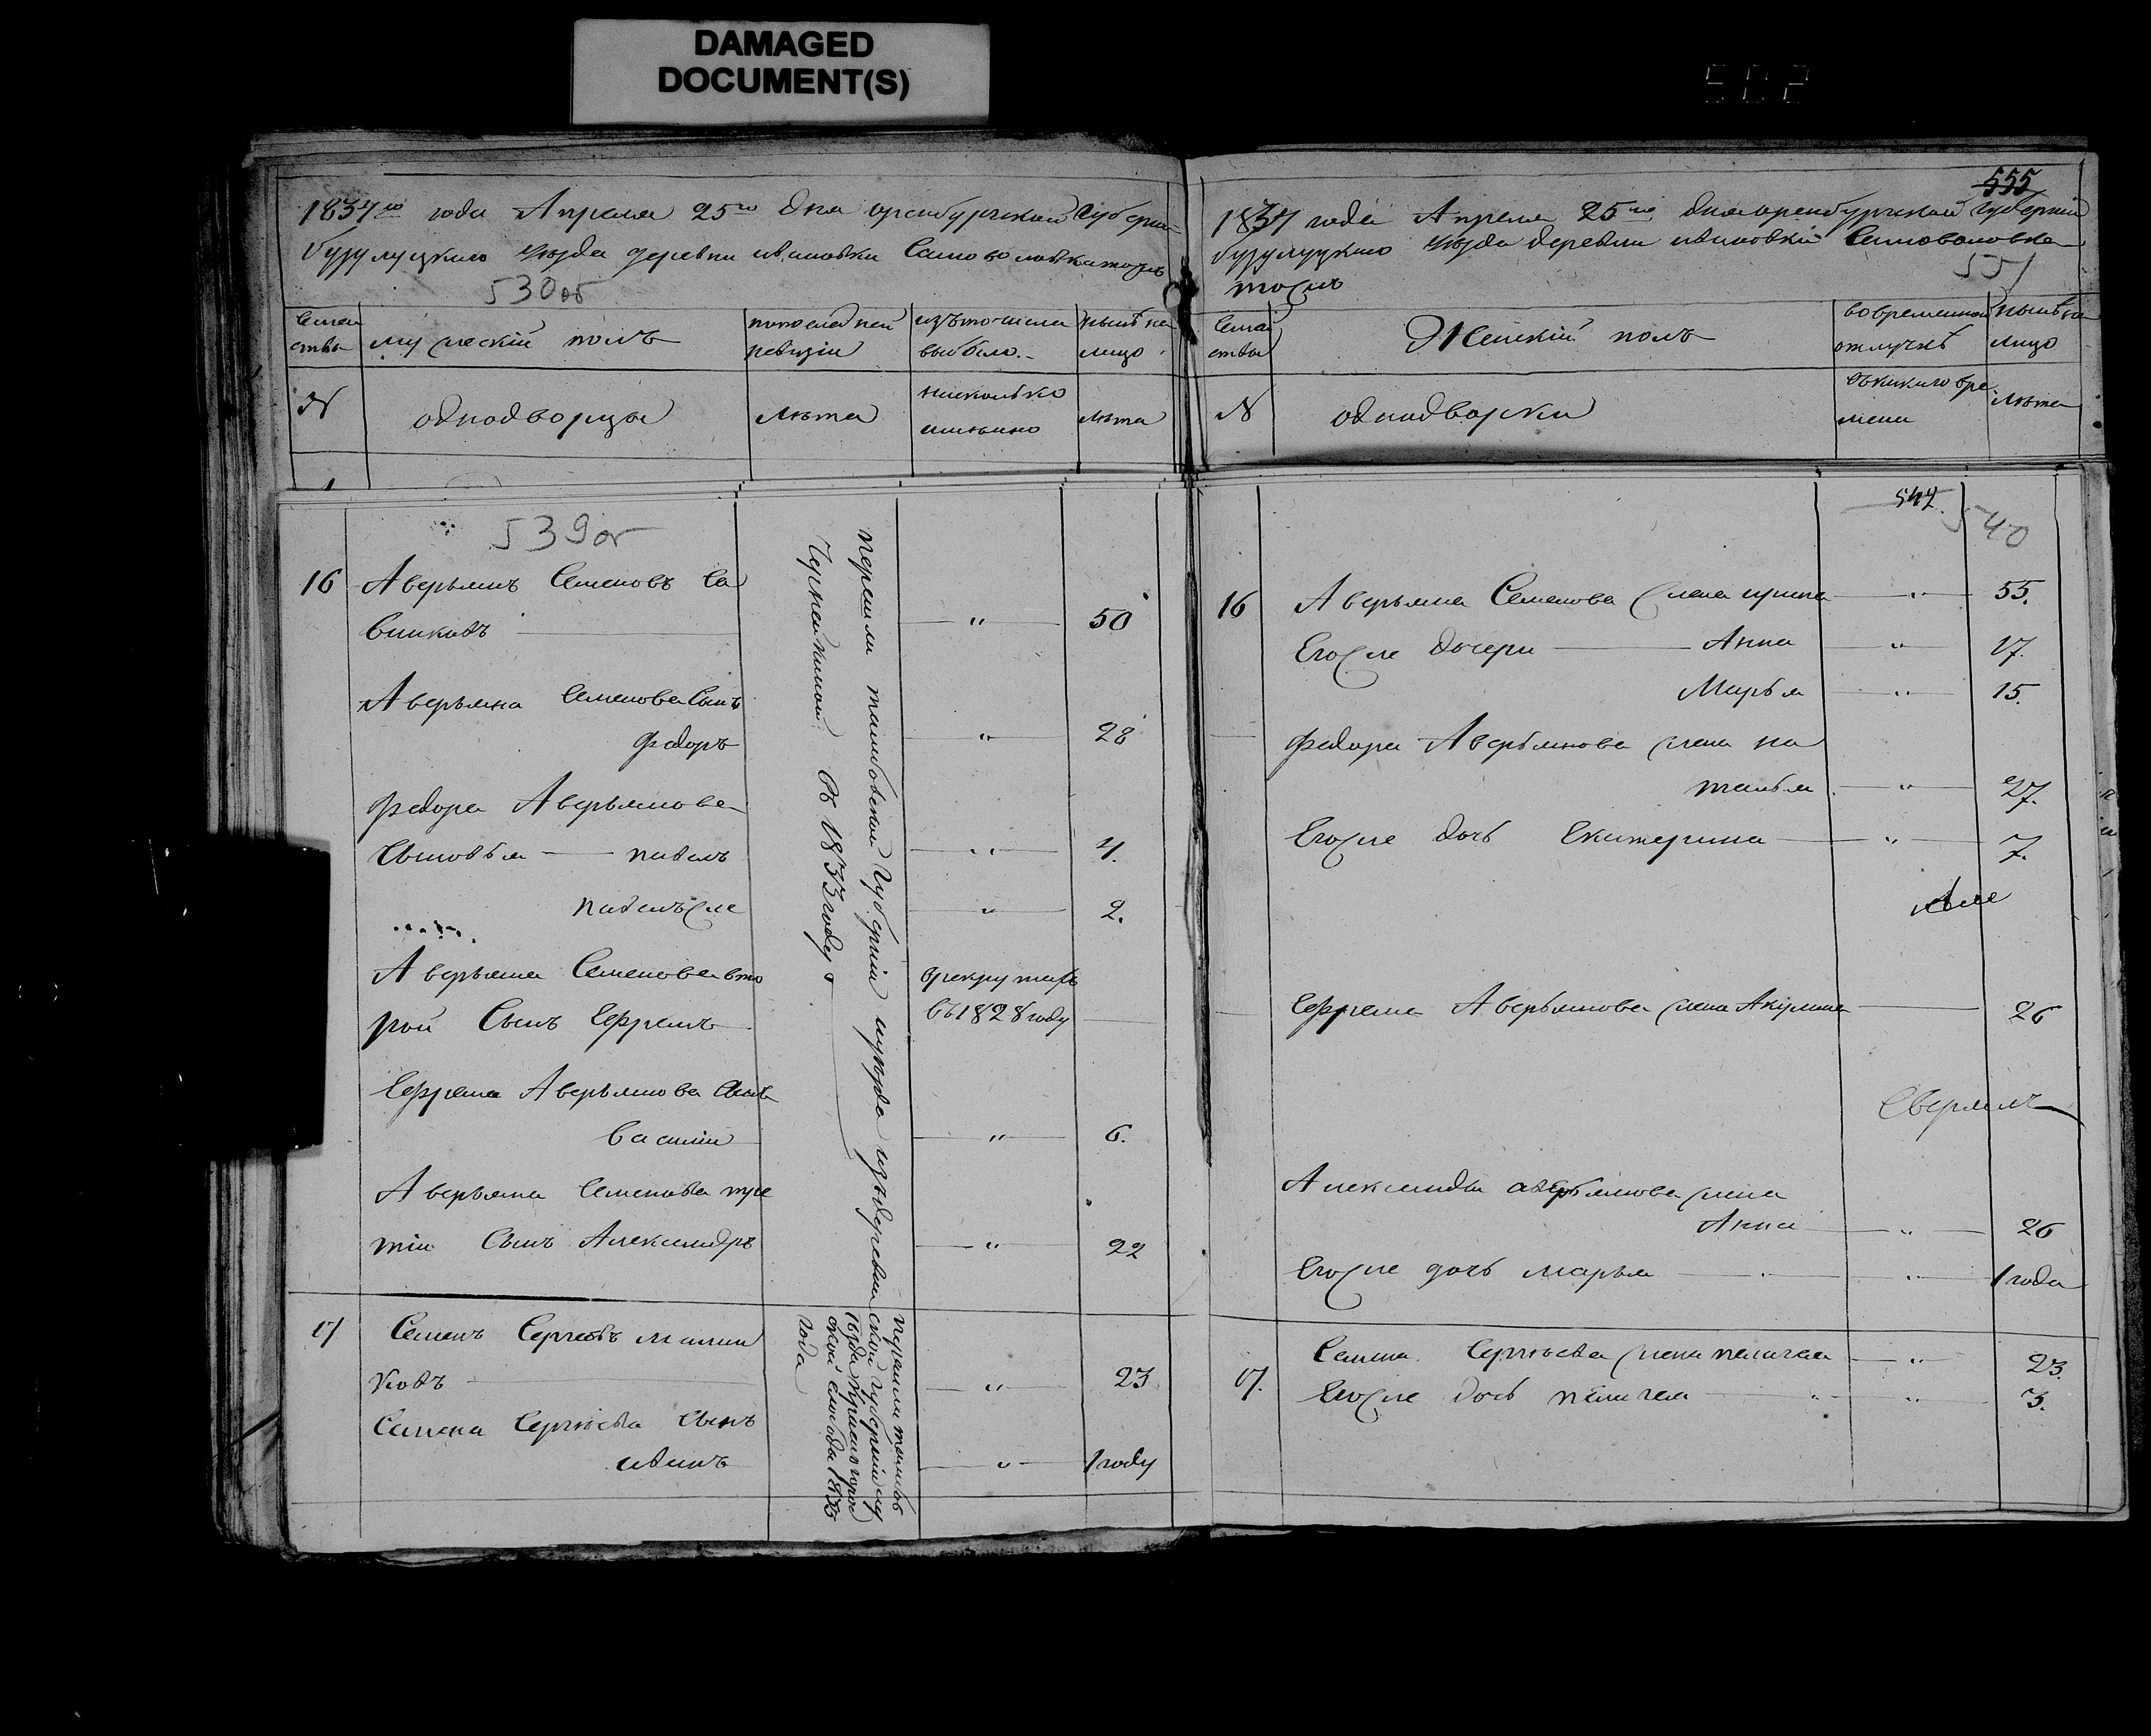 DAMAGED
DOCUMENT(S)
502
1834го года Апреля 25го дня оренбургской Губернии
бузулуцкаго уезда деревни ивановки Самоволовка тожъ
530об
Семей
ства
мужеский полъ
попоследней
ревизiи
изътогочисла
выбыло
ныне на
лицо
№
однодворцы
лета
лета
539об
16
Аверьянъ Семеновъ Са
виковъ
"
50
Аверьяна Семенова Сынъ
федоръ
"
28
федора Аверьянова
Сыновья павелъ
"
4.
павелъже
"
2.
Аверьяна Семенова вто
рой Сынъ Ефремъ
врекрутахъ
въ1828году
Ефрема Аверьянова Сынъ
василiй
"
6.
Аверьяна Семенова тре
тiй Сынъ Александръ
"
22
перешли тамбовской Губернiи
въ 1833году
17
Семенъ Сергеевъ
ковъ
"
23
Семена Сергеева Сынъ
иванъ
"
1году
перешли тамбов
ской губернiи
года
555
1834 года Апреля 25го дня оренбургской Губернiи
бузулуцкаго уезда деревни ивановки Самоволовка
тожъ
551
Семей
ства
Женскiй полъ
вовременной
отлучке
ныне на
лицо
№
однодворки
съкакаговре
мени
лета
547
540
16
Аверьяна Семенова жена
"
55.
Егоже дочери Анна
"
17.
Марья
"
15.
федора Аверьянова жена на
талья
"
27.
Егоже дочь Екатерина
"
7.
Ефрема Аверьянова жена Акулина
26
Сверялъ
Александра аверьянова жена
Анна
"
26
Егоже дочь марья
"
1 года
17.
Семена Сергеева жена пелагея
"
23.
Егоже дочь пелагея
"
3.